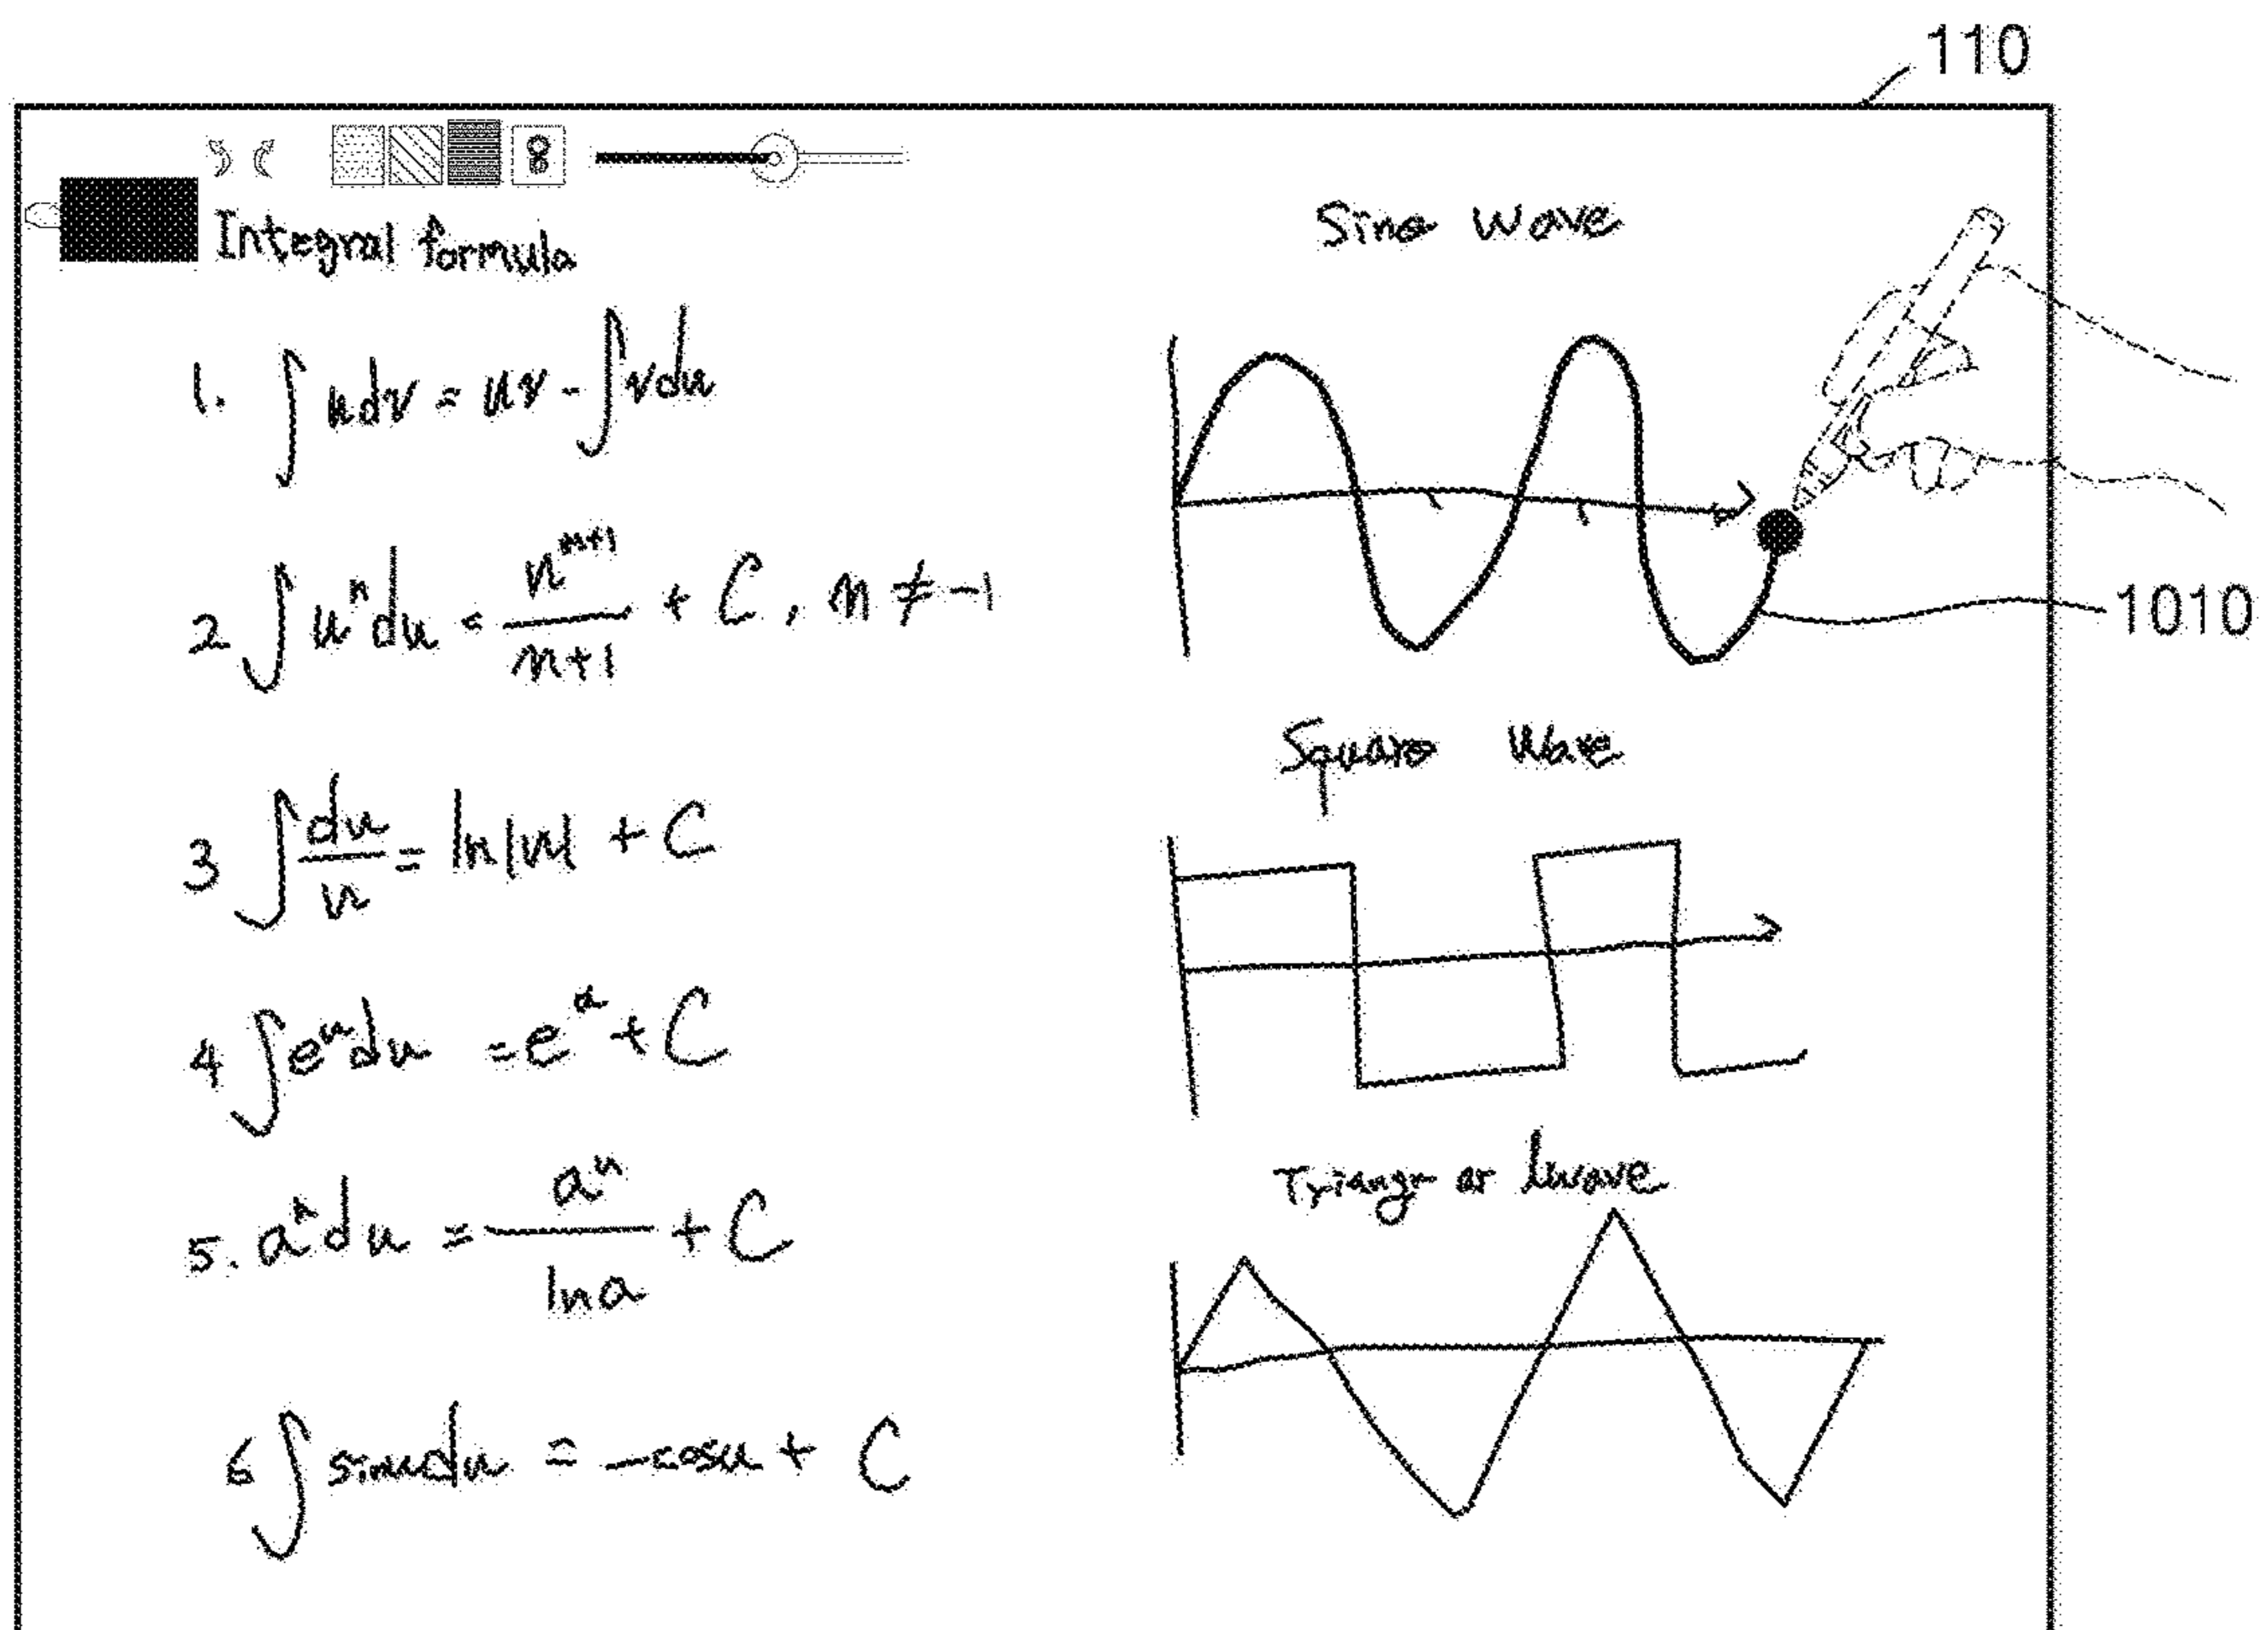 110
Integral formula
1. ∫ u dv = uv - ∫ v du
2 ∫ uⁿ du = uⁿ⁺¹/n+1 + C, n ≠ -1
3 ∫ du/u = ln|u| + C
4 ∫ eᵘ du = eᵘ + C
5. aᵘ du = aᵘ/ln a + C
6 ∫ sinu du = -cosu + C
Sine Wave
1010
Square Wave
wave